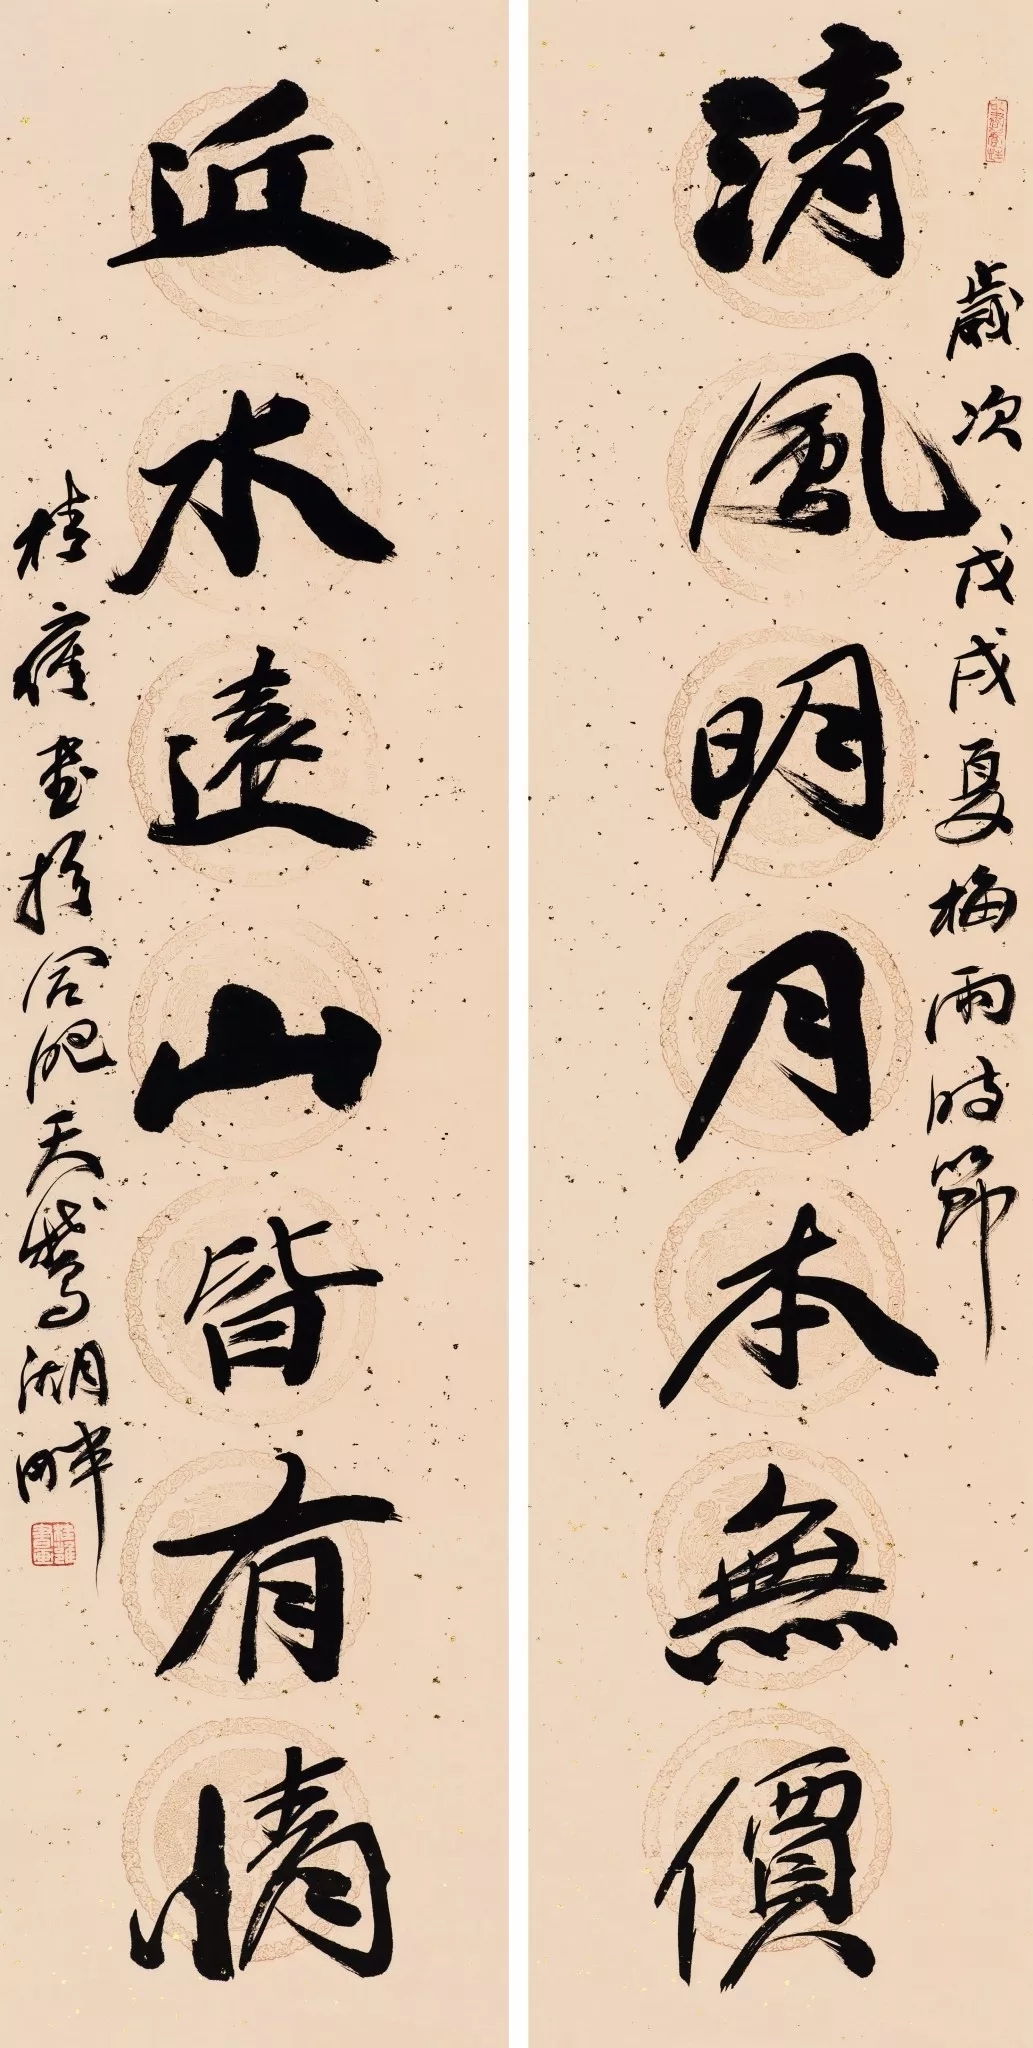 歲次戊戌夏梅雨時節
清風明月本無價
近水遠山皆有情
桂雍書於合肥天鵝湖畔